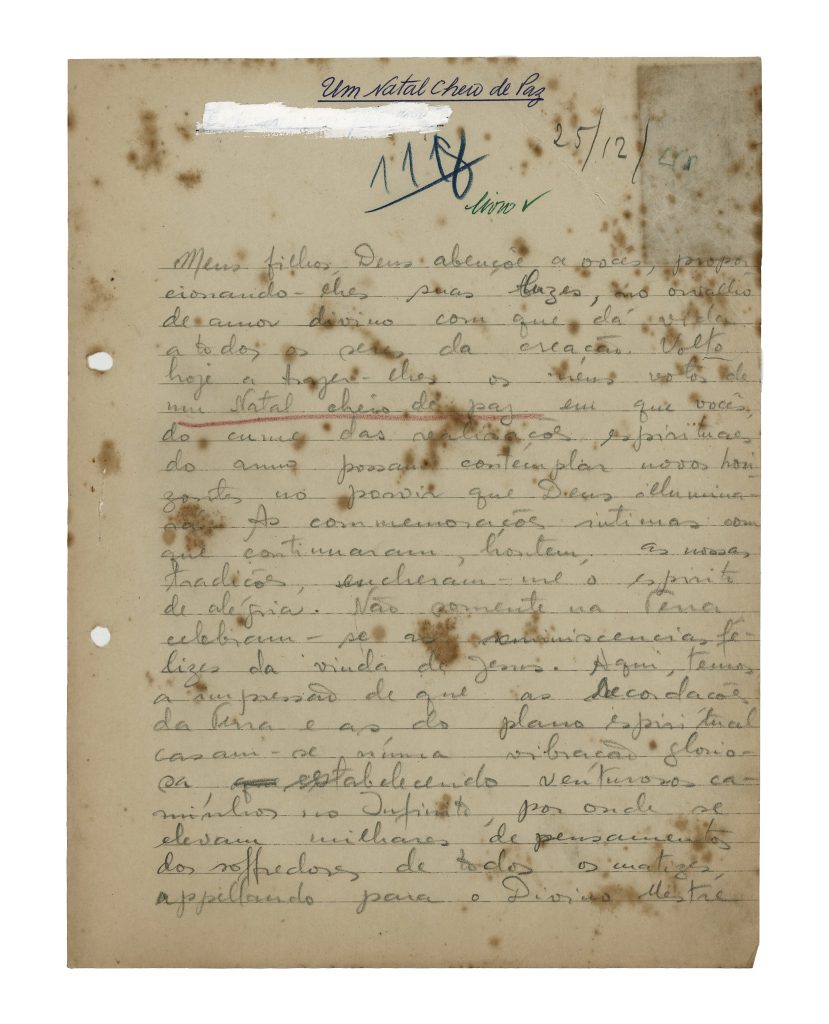 Um Natal Cheio de Paz
25/12/
111
livro ✓
Meus filhos, Deus abençôe a vocês, propor
cionando-lhes suas luzes, no orvalho
de amor divino com que dá vida
a todos os seres da creação. Volto
hoje a trazer-lhes os meus votos de
um Natal cheio de paz em que vocês,
do cume das realizações espirituaes
do anno possam contemplar novos hori
zontes no porvir que Deus illumina-
rá. As commemorações intimas com
que continuaram, hontem, as nossas
tradições, encheram-me o espirito
de alegria. Não somente na Terra
celebram-se as reminiscencias fe-
lizes da vinda de Jesus. Aqui, temos
a impressão de que as recordações
da Terra e as do plano espiritual
casam-se numa vibração glorio-
sa estabelecendo venturosos ca-
minhos no Infinito, por onde se
elevam milhares de pensamentos
dos soffredores de todos os matizes
appellando para o Divino Mestre